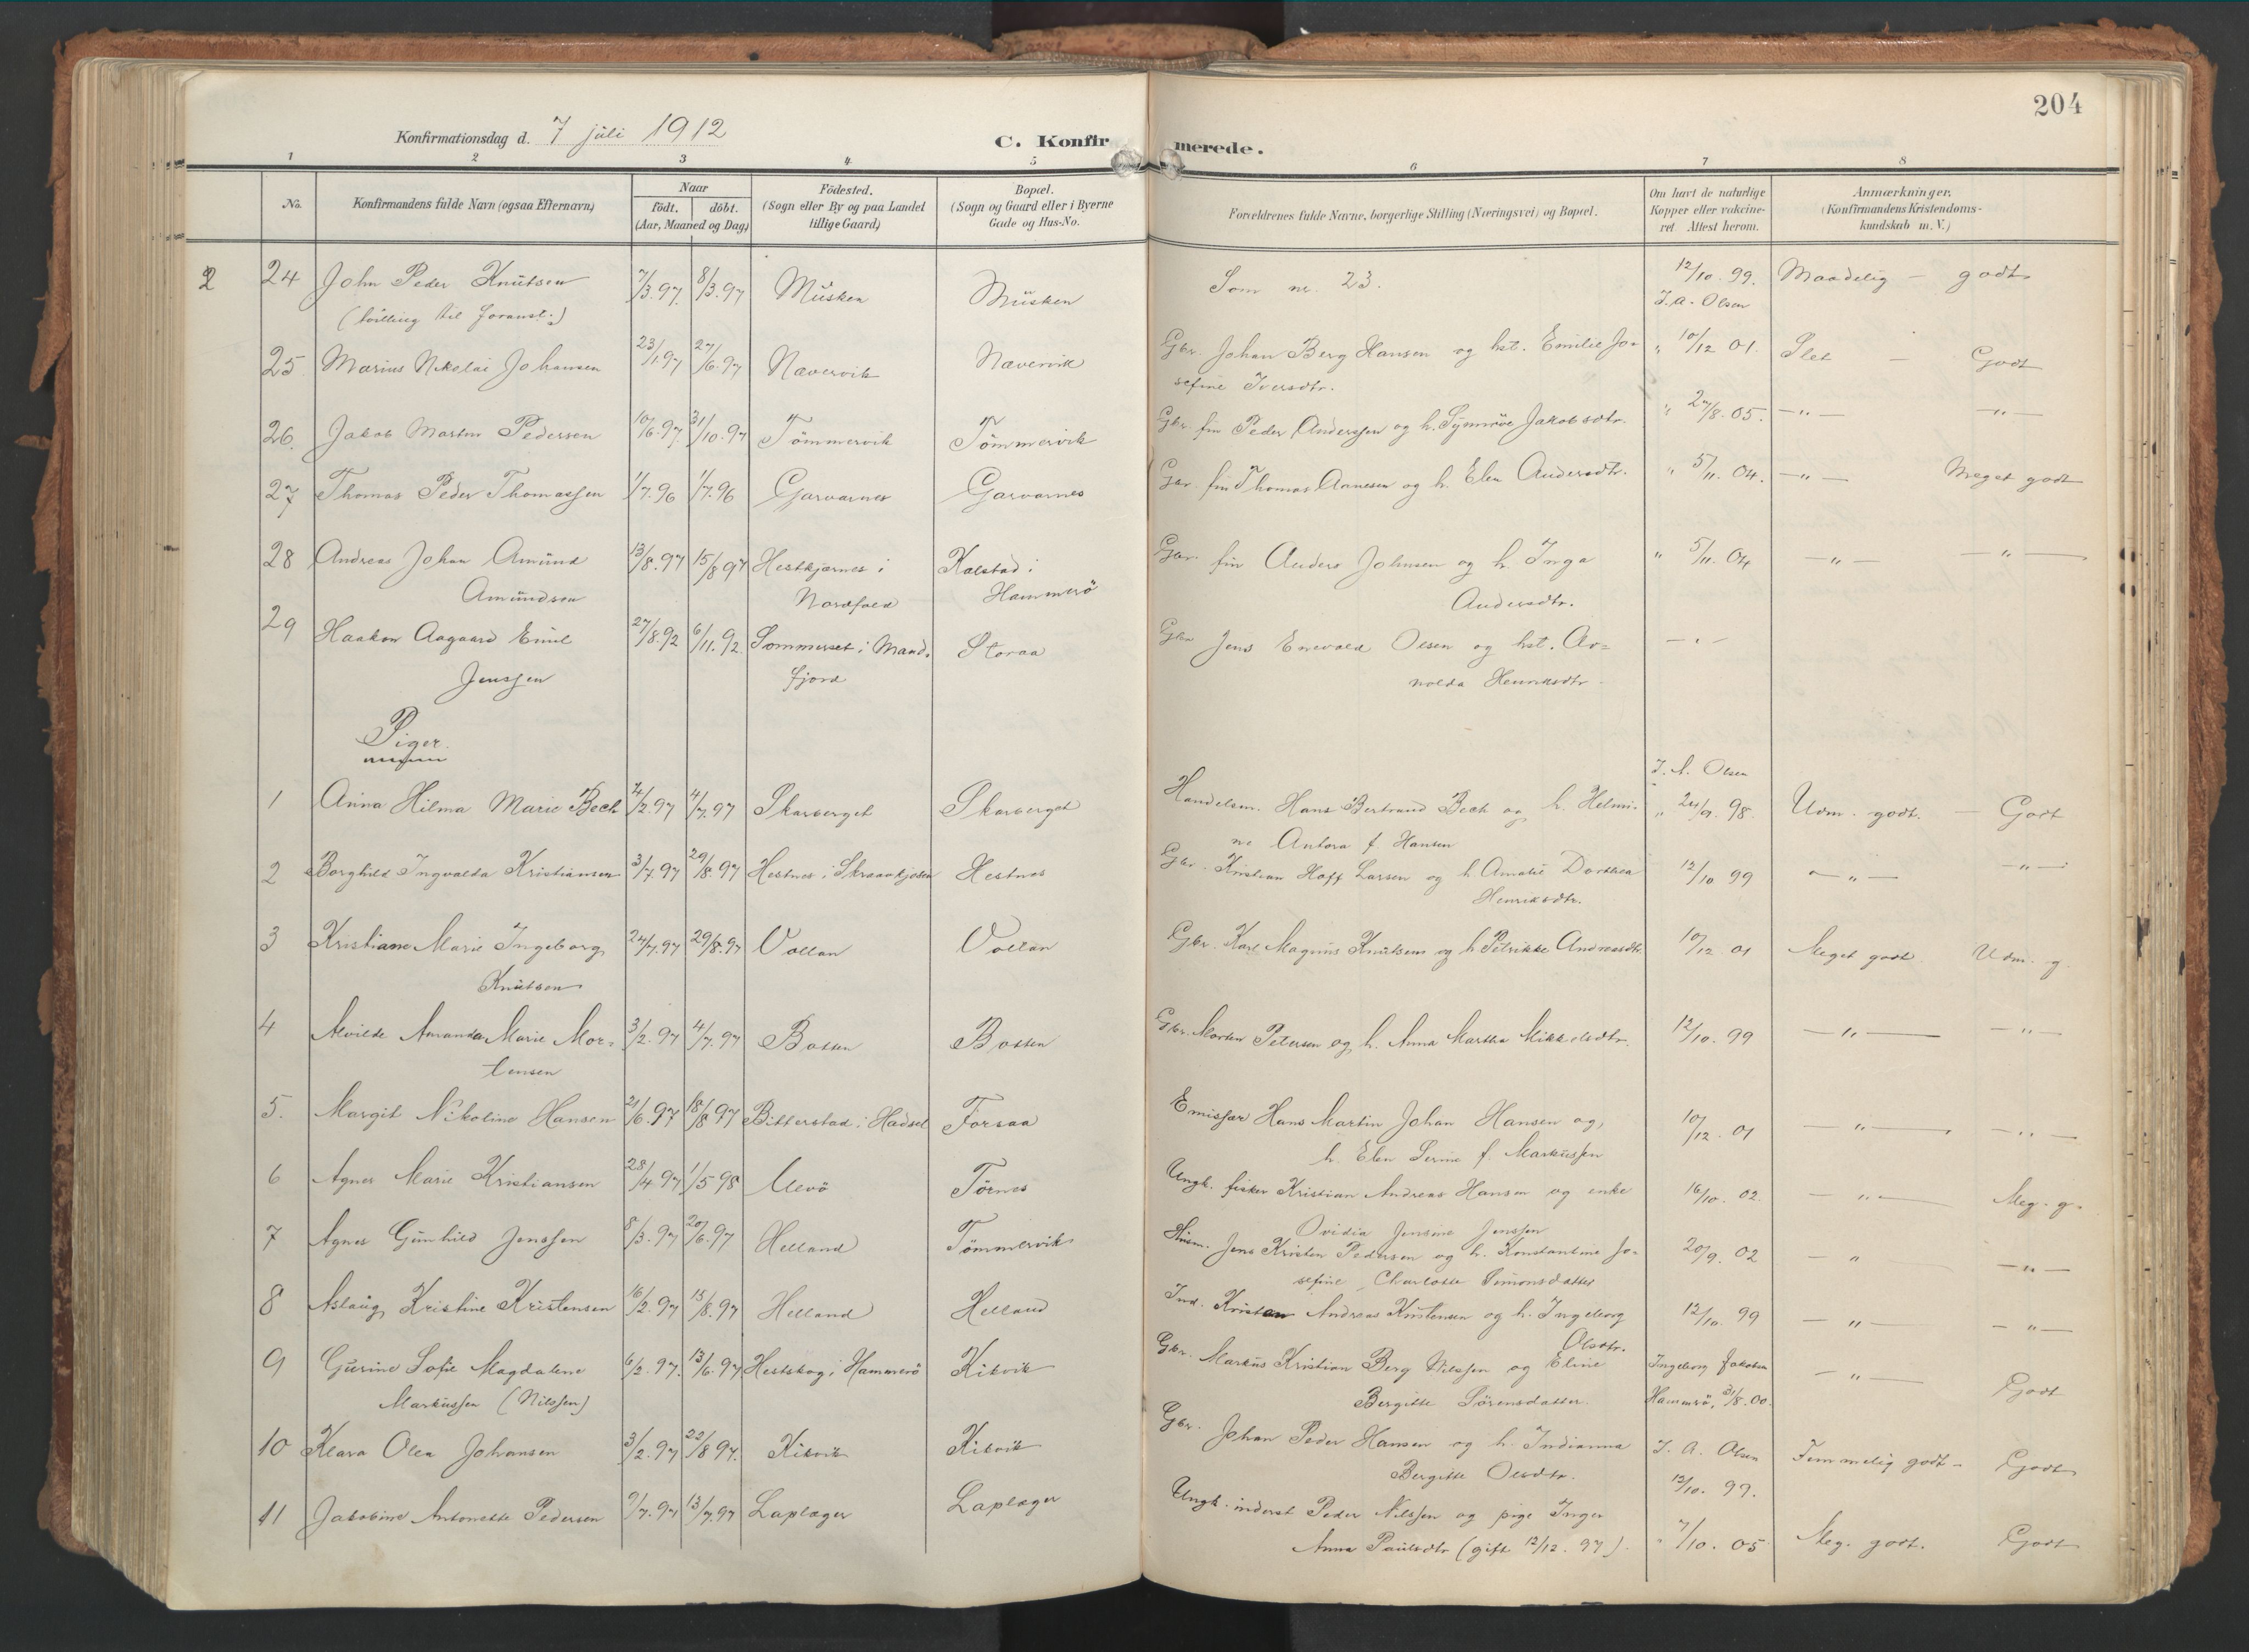 204
Konfirmationsdag d. 7 juli 1912
C. Konfirmerede.
1 2 3 4 5 6 7 8
No.
Konfirmandens fulde Navn (ogsaa Efternavn)
Naar
födt. döbt.
(Aar, Maaned og Dag)
Födested.
(Sogn eller By og paa Landet
tillige Gaard)
Bopæl.
(Sogn og Gaard eller i Byerne
Gade og Hus-No.
Forældrenes fulde Navne, borgerlige Stilling (Næringsvei) og Bopæl.
Om havt de naturlige
Kopper eller vakcine-
ret. Attest herom.
Anmærkninger.
(Konfirmandens Kristendoms-
kundskab m. V.)
2 24 John Peder Knutsen 7/3.97 8/3.97 Musken Musken Som nr. 23. 12/10.99. Maadelig – godt
(tvilling til foranst:) J. A. Olsen
25 Marius Nikolai Johansen 23/1 97 27/6.97 Nævervik Nævervik Gbr. Johan Berg Hansen og hst. Emilie Jo- " 10/12 01. Slet – Godt
sefine Iversdtr.
26. Jakob Martin Pedersen 10/6.97. 31/10.97 Tömmervik Tömmervik Gbr. fin Peder Anderssen og h. Synnöve Jakobsdtr. " 27/8.05. —"— —"—
27 Thomas Peder Thomassen 1/7.96 1/7.96 Garvarnes Garvarnes Gbr. fin Thomas Aanesen og h. Elen Andersdtr. " 5/11.04. —"— Meget godt
28 Andreas Johan Amund 13/8.97 15/8 97 Hestkjærnes i Kalstad i Gbr. fin Anders Johnsen og h. Inga " 5/11.04 —"— —"—
Amundsen Nordfold Hammerö Andersdtr.
29 Haakon Aagaard Emil 27/8.92 6/11.92 Sommerset i Mand- Storaa Gbr Jens Enevold Olsen og hst. Ar- —"—
Jenssen fjord nolda Henriksdtr.
Piger.
J. A. Olsen
1 Anna Hilma Marie Bech 4/2.97 4/7.97 Skarberget Skarberget Handelsm. Hans Bertrand Bech og h. Helmi- " 24/9.98. Udm. godt. – Godt
ne Antora f Hansen
2 Borghild Ingvalda Kristiansen 3/7.97 29/8.97 Hestnes i Skraavkjosen Hestnes Gbr. Kristian Hoff Larsen og h Amalie Dorthea 12/10 99 —"— —"—
Henriksdtr.
3 Kristiane Marie Ingeborg 24/7.97 29/8.97 Vollan Vollan Gbr. Karl Magnus Knutsen og h Petrikke Andreasdtr. 10/12 01 Meget godt Udm. g.
Knutsen
4 Alvilde Amanda Marie Mor- 3/2.97 4/7.97 Botten Botten Gbr. Morten Petersen og h. Anna Martha Mikkelsdtr. 12/10.99 —"— —"—
tensen
5. Margit Nikoline Hansen 21/6.97 18/8 97 Bitterstad i Hadsel Forsaa Emissær Hans Martin Johan Hansen og, 10/12.01 —"— —"—
h. Elen Serine f. Markussen
6 Agnes Marie Kristiansen 28/4 97 1/5 98 Ulvö Törnes Ungk. fisker Kristian Andreas Hansen og enke 16/10.02. —"— Meg. g.
Ovidia Jensine Jenssen
7 Agnes Gunhild Jenssen 8/3.97 20/6.97 Helland Tömmervik Husm. Jens Kristen Pedersen og h. Konstantine Jo- 20/9.02 —" —"—
sefine Charlotte Simonsdatter
8 Aslaug Kristine Kristensen 16/2.97 15/8.97 Helland Helland Ind. Kristen Andreas Kristensen og h. Ingeborg 12/10 99 —"— —"—
Olsdtr.
9 Gurine Sofie Magdalene 6/2.97. 13/6.97 Hestskog i Hammerö Kikvik Gbr. Markus Kristian Berg Nilssen og Eline Ingeborg Jakobsen —"— Godt
Markussen (Nilssen) Bergitte Sörensdatter. Hammerö, 31/8.00.
10 Klara Olea Johansen 3/2.97 22/8 97. Kikvik Kikvik Gbr. Johan Peder Hansen og h. Indianna J. A. Olsen Temmelig godt – Godt
Bergitte Olsdtr. 12/10. 99.
11 Jakobine Antonette Pedersen 9/7.97 13/7.97 Laplæger Laplæger Ungk. inderst Peder Nilssen og pige Inger
Anna Paulsdtr (gift 12/12.97). " 7/10.05 Meg. godt. Godt